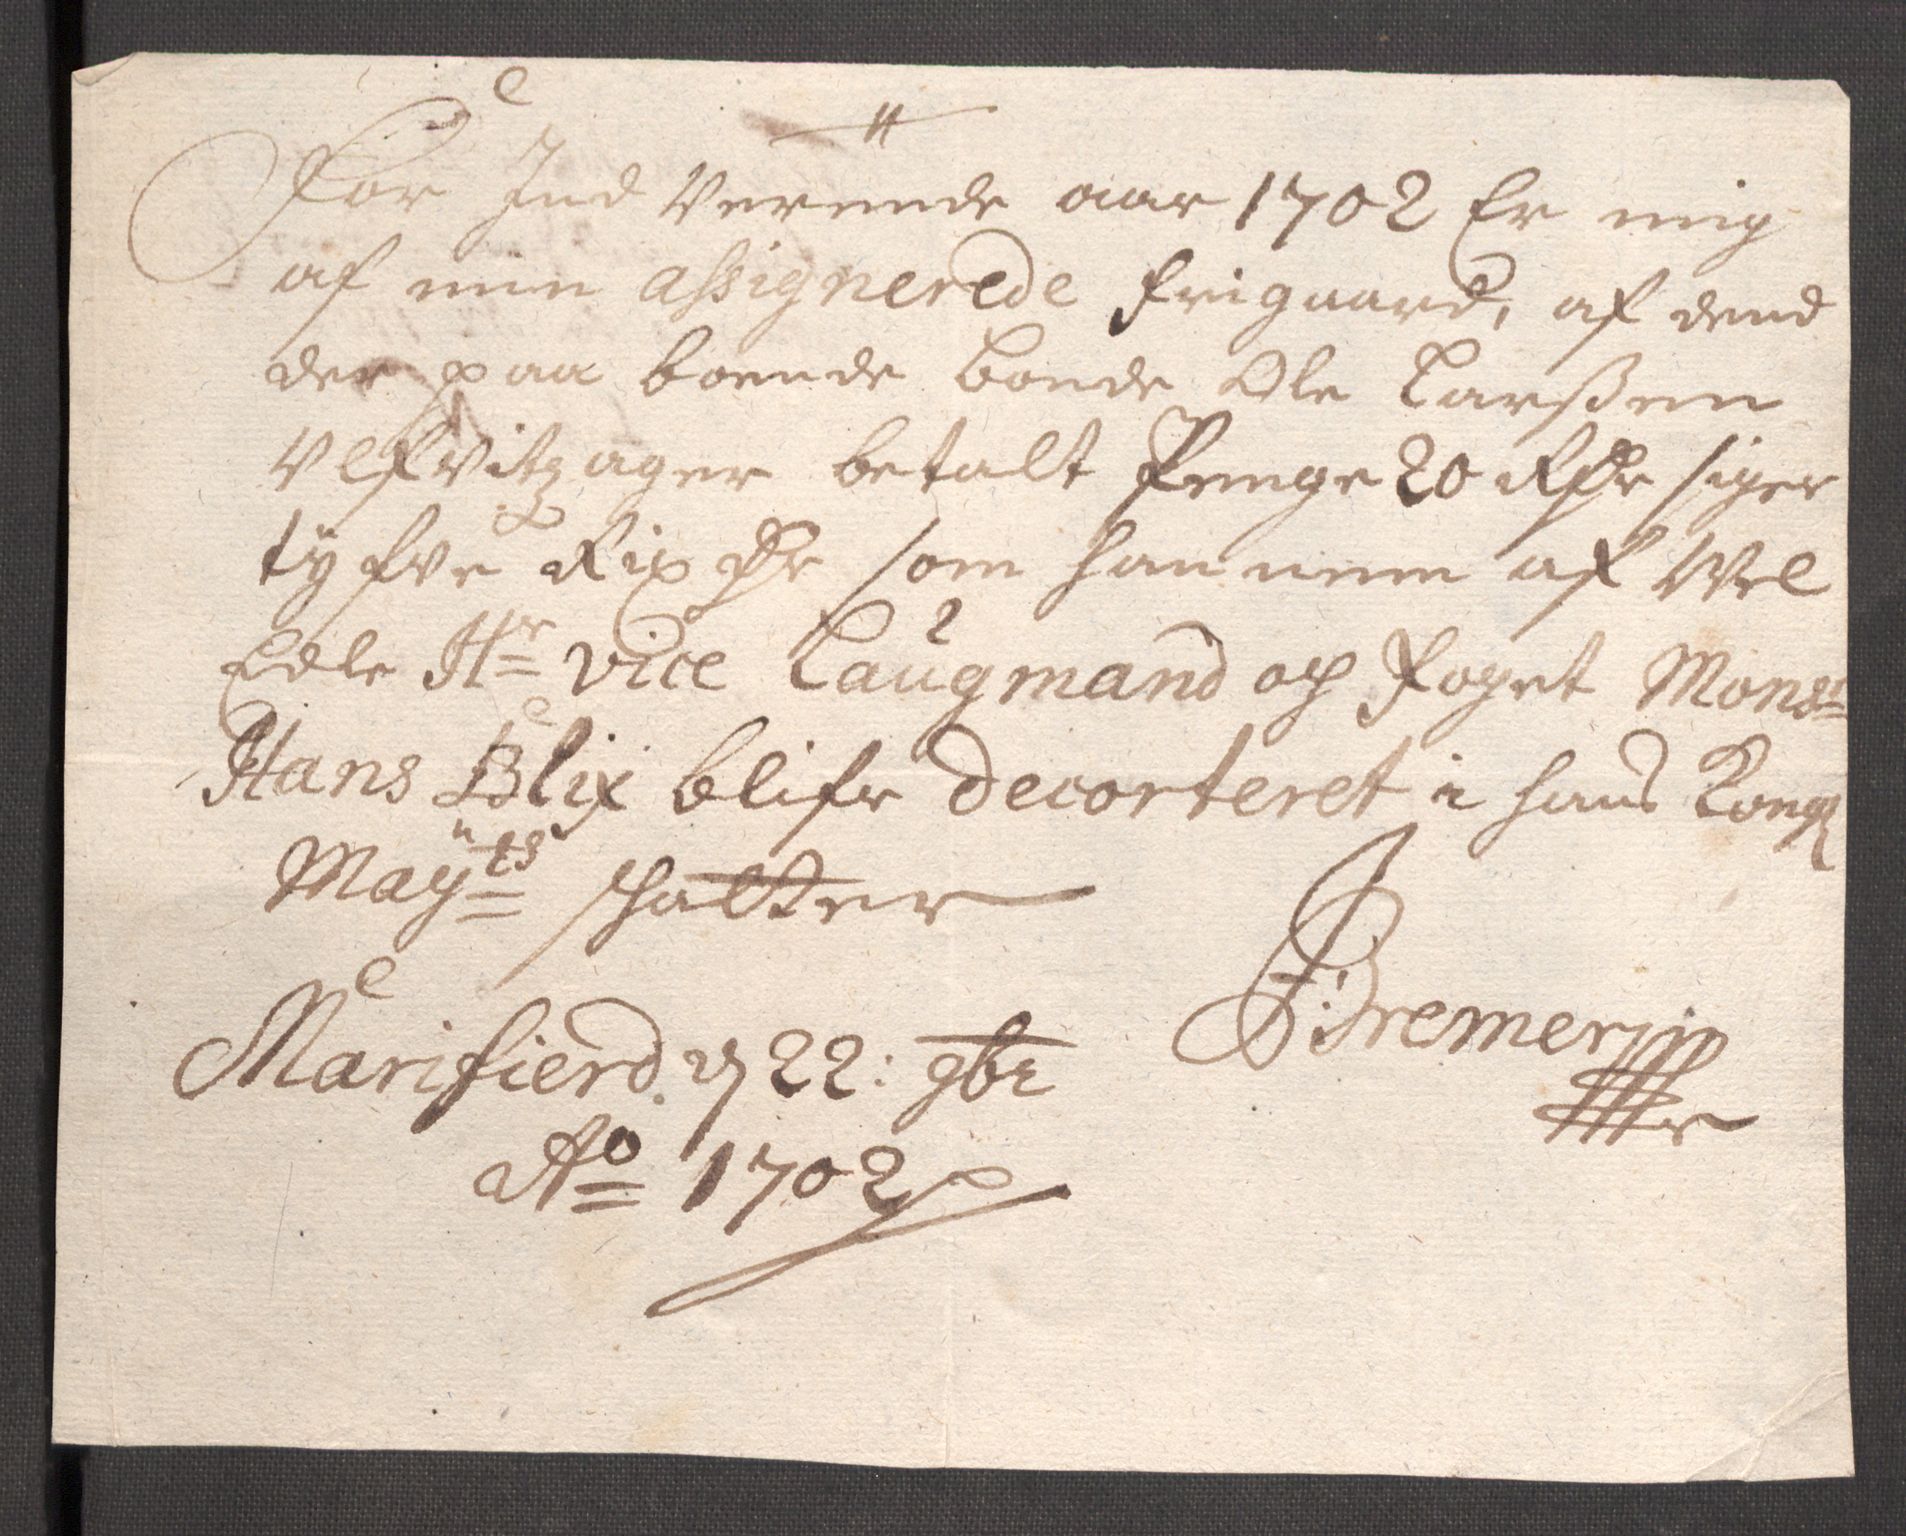 For Ind Verende aar 1702 Er mig
af min assignerede frigaard, af dend
der paa boende bonde Ole Larßen
Ulfvitzager betalt Penge 20 Rdr siger
tyfve Rix dr som hannem af Wel
Edle Hr Vice Laugmand og foget Monsr
Hans Blix blifr decorteret i hans Kongl
Mayts schatter
Marifierd d 22: 9br
JBremer
Ao 1702